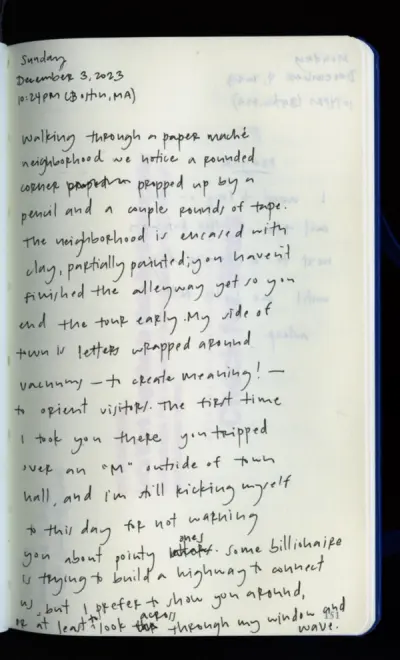 Sunday
December 3, 2023
10:24PM (Boston, MA)
Walking through a paper maché
neighborhood we notice a rounded
corner propped up by a
pencil and a couple rounds of tape.
The neighborhood is encased with
clay, partially painted; you haven't
finished the alleyway yet so you
end the tour early. My side of
town is letters wrapped around
vacuums — to create meaning! —
to orient visitors. The first time
I took you there you tripped
over an "M" outside of town
hall, and I'm still kicking myself
to this day for not warning
you about pointy ones. Some billionaire
is trying to build a highway to connect
us, but I prefer to show you around,
or at least to look across through my window and
wave.
151